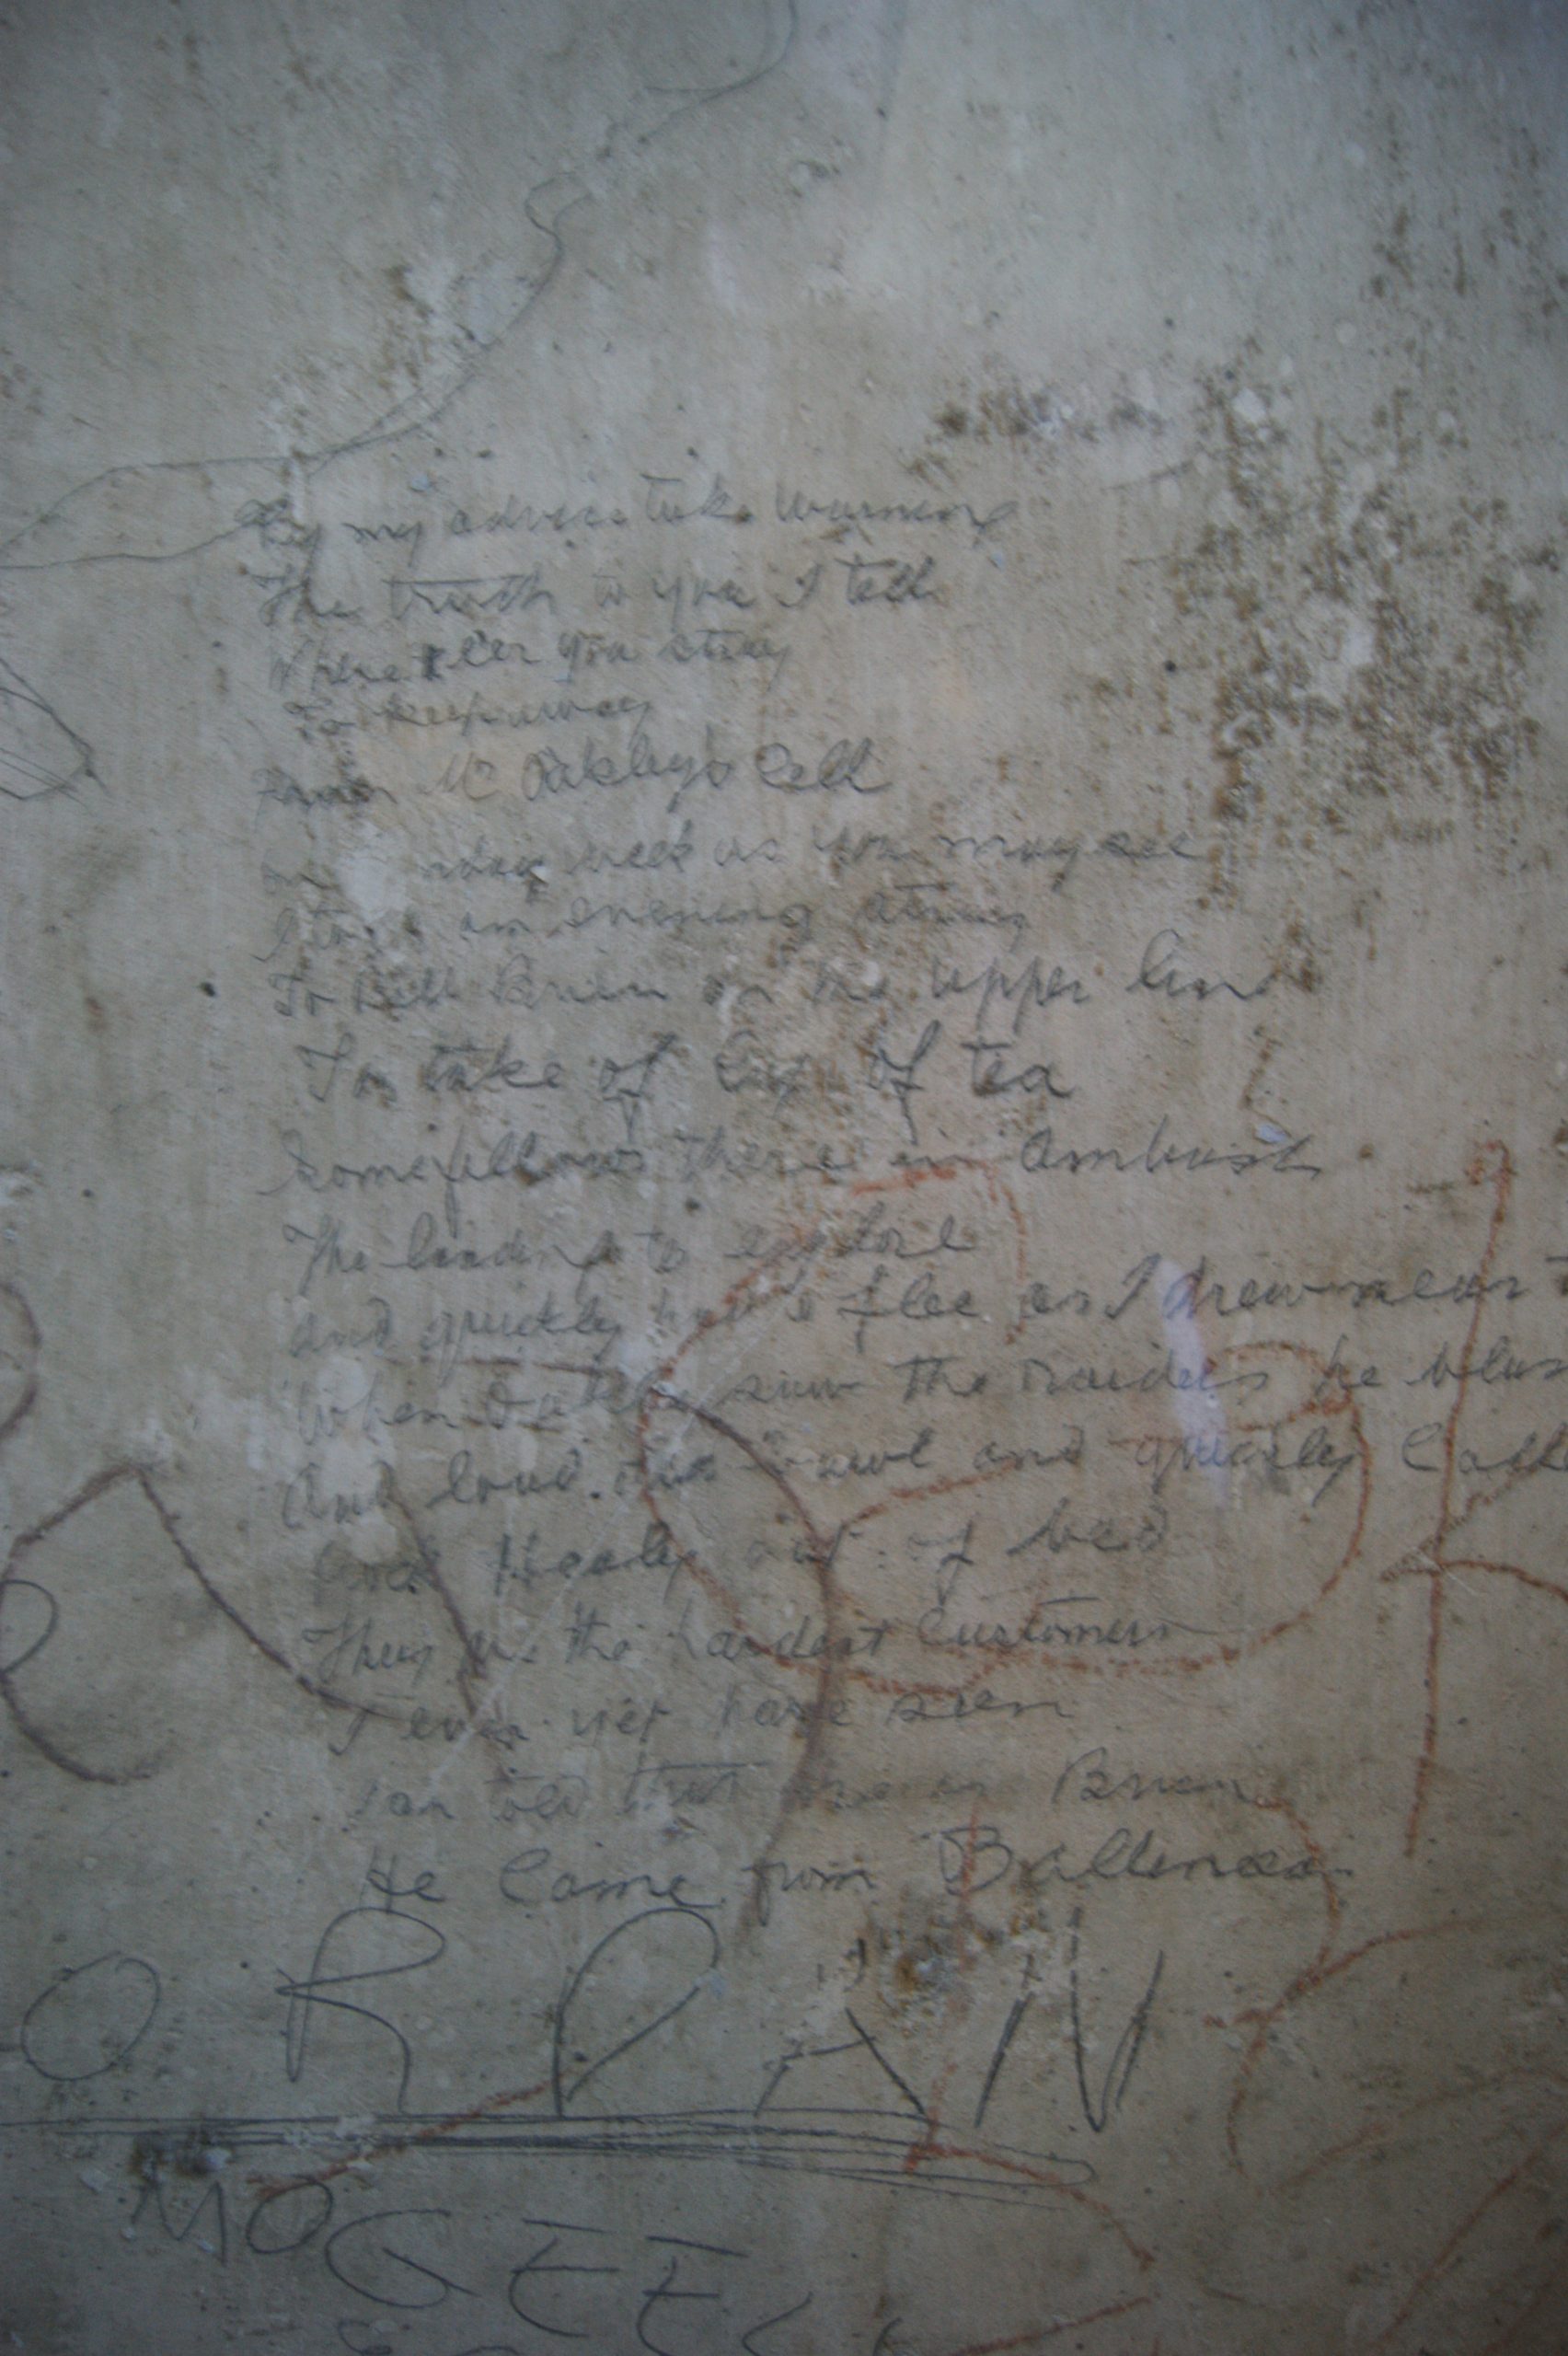 By my advice take warning
The truth to you I tell
Where e'er you stray
To keep away
From Mc Oakley's Cell
on week as you may see
I an evening stray
To Bill Brien on the upper line
To take of Cup of tea
Some fellows there in ambush
The landing to explore
and quickly had to flee as I drew near
When saw the raiders he
And loud did bawl and quickly
Healy out of bed
They are the hardest Customers
I ever yet have seen
told that one is Brien
He Came from Ballinasa
O R P A N
MOGEEL